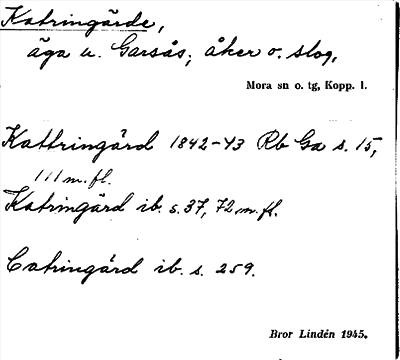 Katringärde,
äga u. Garsås; åker o. slog.
Mora sn o. tg, Kopp. l.
Kattringärd 1842-43 Rb Ga s. 15,
111 m. fl.
Katringärd ib. s. 37, 72 m. fl.
Catringärd ib. s. 259.
Bror Lindén 1945.